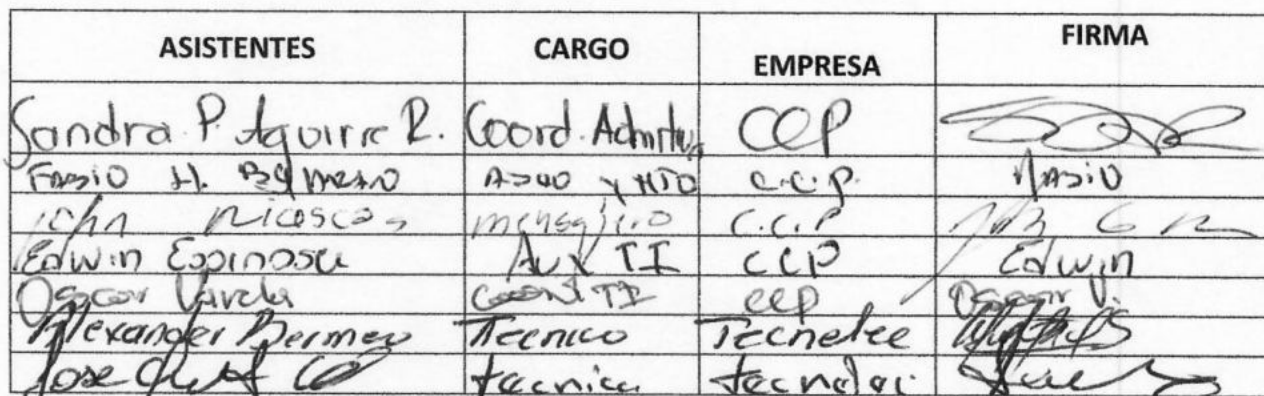 ASISTENTES CARGO EMPRESA FIRMA
Sandra P. Aguirre R. Coord. Admitva CCP
Fabio H. Aseo y MTO C.C.P. Fabio
John mensajero C.C.P
Edwin Espinosa Aux TI CCP Edwin
Oscar Varela Coord TI CCP Oscar V.
Alexander Bermeo Tecnico Tecnelec
Jose tecnico tecnelec